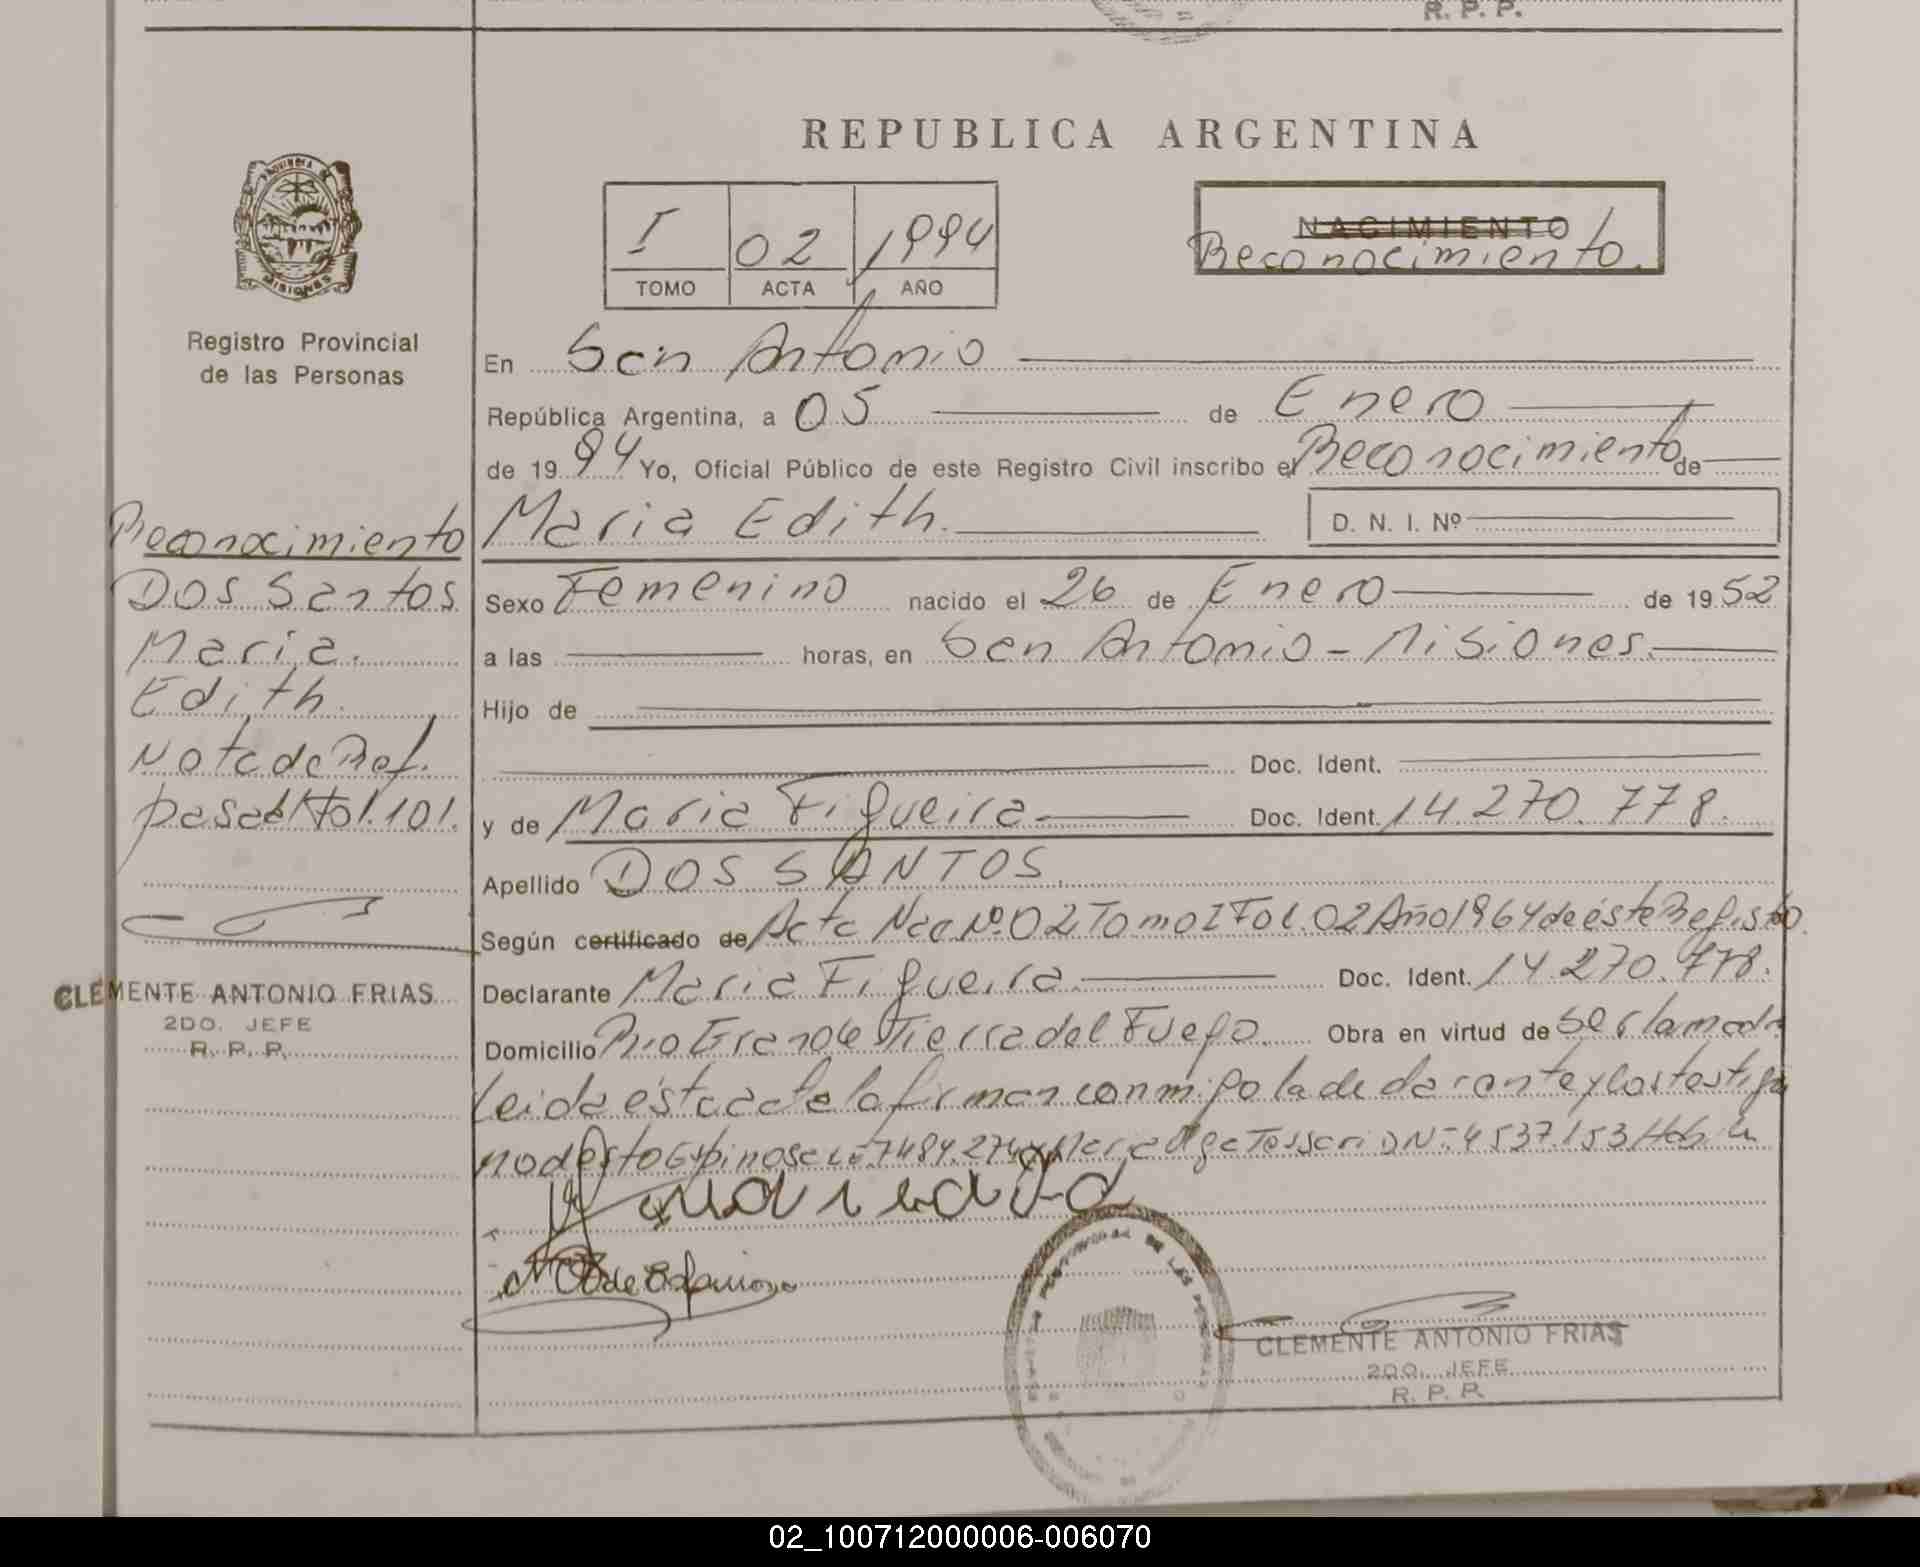 R. P. P.
REPUBLICA ARGENTINA
PROVINCIA DE
MISIONES
Registro Provincial
de las Personas
I 02 1994
TOMO ACTA AÑO
NACIMIENTO
Reconocimiento.
En San Antonio
República Argentina, a 05 de Enero
de 1994 Yo, Oficial Público de este Registro Civil inscribo el Reconocimiento de
Maria Edith. D. N. I. Nº
Sexo Femenino nacido el 26 de Enero de 1952
a las horas, en San Antonio - Misiones.
Hijo de
Doc. Ident.
y de Maria Figueira Doc. Ident. 14.270.778.
Apellido DOS SANTOS.
Según certificado de Acta Nac Nº 02 Tomo I Fol. 02 Año 1964 de éste Registro.
Declarante Maria Figueira. Doc. Ident. 14.270.778.
Domicilio Rio Grande Tierra del Fuego. Obra en virtud de ser la madre
Leida ésta acta la firman conmigo la declarante y los testigos
Modesto Espinosa 7484.274 y Maria Tessari DN: 4537.153
Reconocimiento
Dos Santos
Maria.
Edith.
Nota de Ref.
pasa al Fol. 101.
CLEMENTE ANTONIO FRIAS
2DO. JEFE
R. P. P.
de Espinosa
PROVINCIAL DE LAS PERSONAS
CLEMENTE ANTONIO FRIAS
2DO. JEFE
R. P. P.
02_100712000006-006070